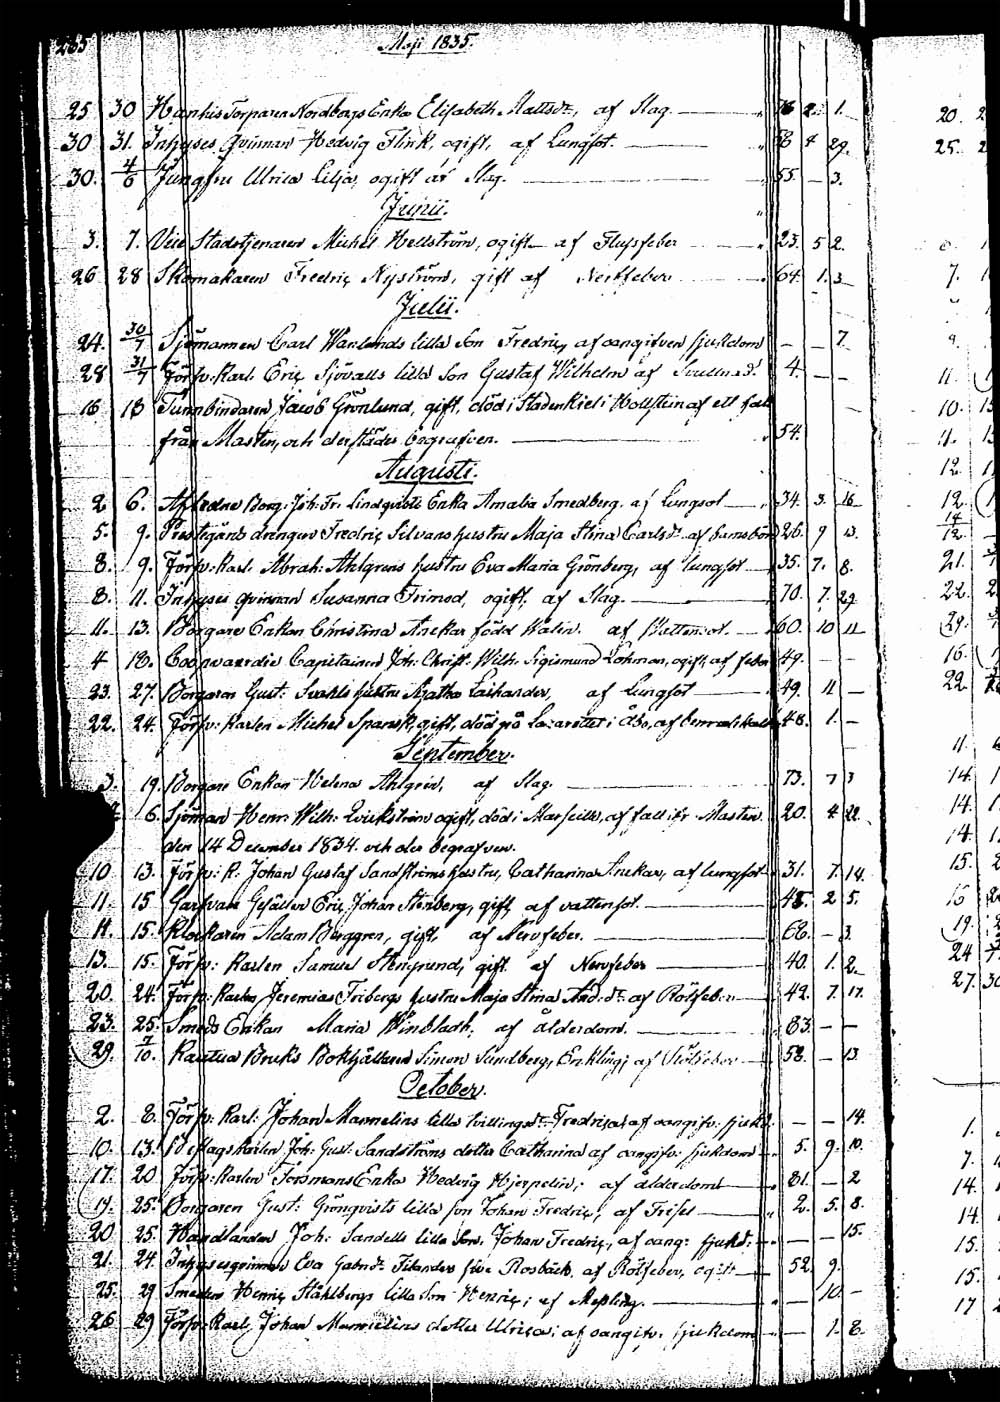 265 Maji 1835.
25 30 Hankis Torparen Nordbergs Enka Elisabeth Mattsdr, af Slag. 76 2 1.
30 31. Inhyses qvinnan Hedvig Flink, ogift, af Lungsot. 58 4 29.
30. 4/6 Jungfru Ulrica Lilja, ogift af Slag. 55. — 3.
Junii.
3. 7. Stadstjenaren Michel Hellström, ogift af Flussfeber 23. 5 2.
26 28 Skomakaren Fredric Nyström, gift af Nervfeber 64. 1. 3
Julii.
24. 30/7 Sjömannen Carl Wänlunds lilla Son Fredric, af oangifven sjukdom — — 7.
28 31/7 Försv: Karl. Eric Sjövalls lilla Son Gustaf Wilhelm af 4. — —
16 18 Tunnbindaren Jacob Grönlund, gift, död i Staden Kiel i Hollstein af ett fall
från Masten, och derstädes begrafven. 54.
Augusti.
2 6. Afledne Borg: Joh: Fr. Lindqvists Enka Amalia Smedberg, af Lungsot 34. 3. 16.
5. 9. Prestgårds drängen Fredric Silvans hustru Maja Stina Carlsdr. af barnsbörd 26. 9 13.
8. 9. Försv: Karl. Abrah: Ahlgrens hustru Eva Maria Grönberg, af lungsot 35. 7. 8.
8. 11. Inhyses qvinnan Susanna Frimod, ogift, af Slag. 70. 7. 29
11. 13. Borgare Enkan Christina Anckar född Walin. af Vattensot. 60. 10 11
4 18. Coopvaerdie Capitainen Joh: Christ: Wilh: Sigismund Lohman, ogift, af feber 49. —
23. 27. Borgaren Gust: Svahls hustru Agatha Laihander, af Lungsot 49. 11 —
22. 24. Försv: Karlen Michel Spansk, gift, död på Lazarettet i Åbo, af 48. 1. —
September.
3. 19. Borgare Enkan Helena Ahlgren, af Slag. 73. 7 3
6. Sjöman Henr: Wilh: Qvickström ogift, död i Marseille, af fall ifr. Masten 20. 4 22.
den 14 December 1834. och der begrafven.
10 13. Försv: K. Johan Gustaf Sandströms hustru, Catharina Anckar, af lungsot 31. 7. 14.
11. 15 Garfvare Gesällen Eric Johan Stenberg, gift, af vattensot. 48. 2 5.
11. 15. Klockaren Adam Berggren, gift, af Nervfeber. 68. — 3.
13. 15. Försv: Karlen Samuel Stengrund, gift af Nervfeber 40. 1. 2.
20. 24. Försv: Karlen Jeremias Fribergs hustru Maja Stina And:dr. af Rötfeber 42. 7. 17.
23. 25. Smeds Enkan Maria Winbladh, af ålderdom. 83. — —
29. 7/10. Kautua Bruks Bokhållaren Simon Sundberg, Enkling, af Rötfeber 58. — 13.
October.
2. 8. Försv: Karl: Johan Mannelins lilla tvillingsdr. Fredrica af oangifv: sjukd. — — 14.
10. 13. Beslags Karlen Joh: Gust: Sandströms dotter Catharina af oangifv: sjukdom 5. 9. 10.
17. 20 Försv: Karlen Forsmans Enka Hedvig Hjerpelin, af ålderdom 81. — 2
19. 25. Borgaren Gust: Grönqvists lilla son Johan Fredric, af Frisel 2. 5. 8.
20 25. Handlanden Joh: Sandells lilla Son Johan Fredric, af oang: sjukd: — — 15.
21. 24. Inhysesqvinnan Eva Gabr:dr. Filander f: Rosbäck, af Rötfeber, ogift 52. 9.
25. 29 Smeden Henric Ståhlbergs lilla Son Henric, af Messling. — 10. —
26 29 Försv: Karl. Johan Mannelins dotter Ulrica, af oangifv: sjukdom — 1. 8.